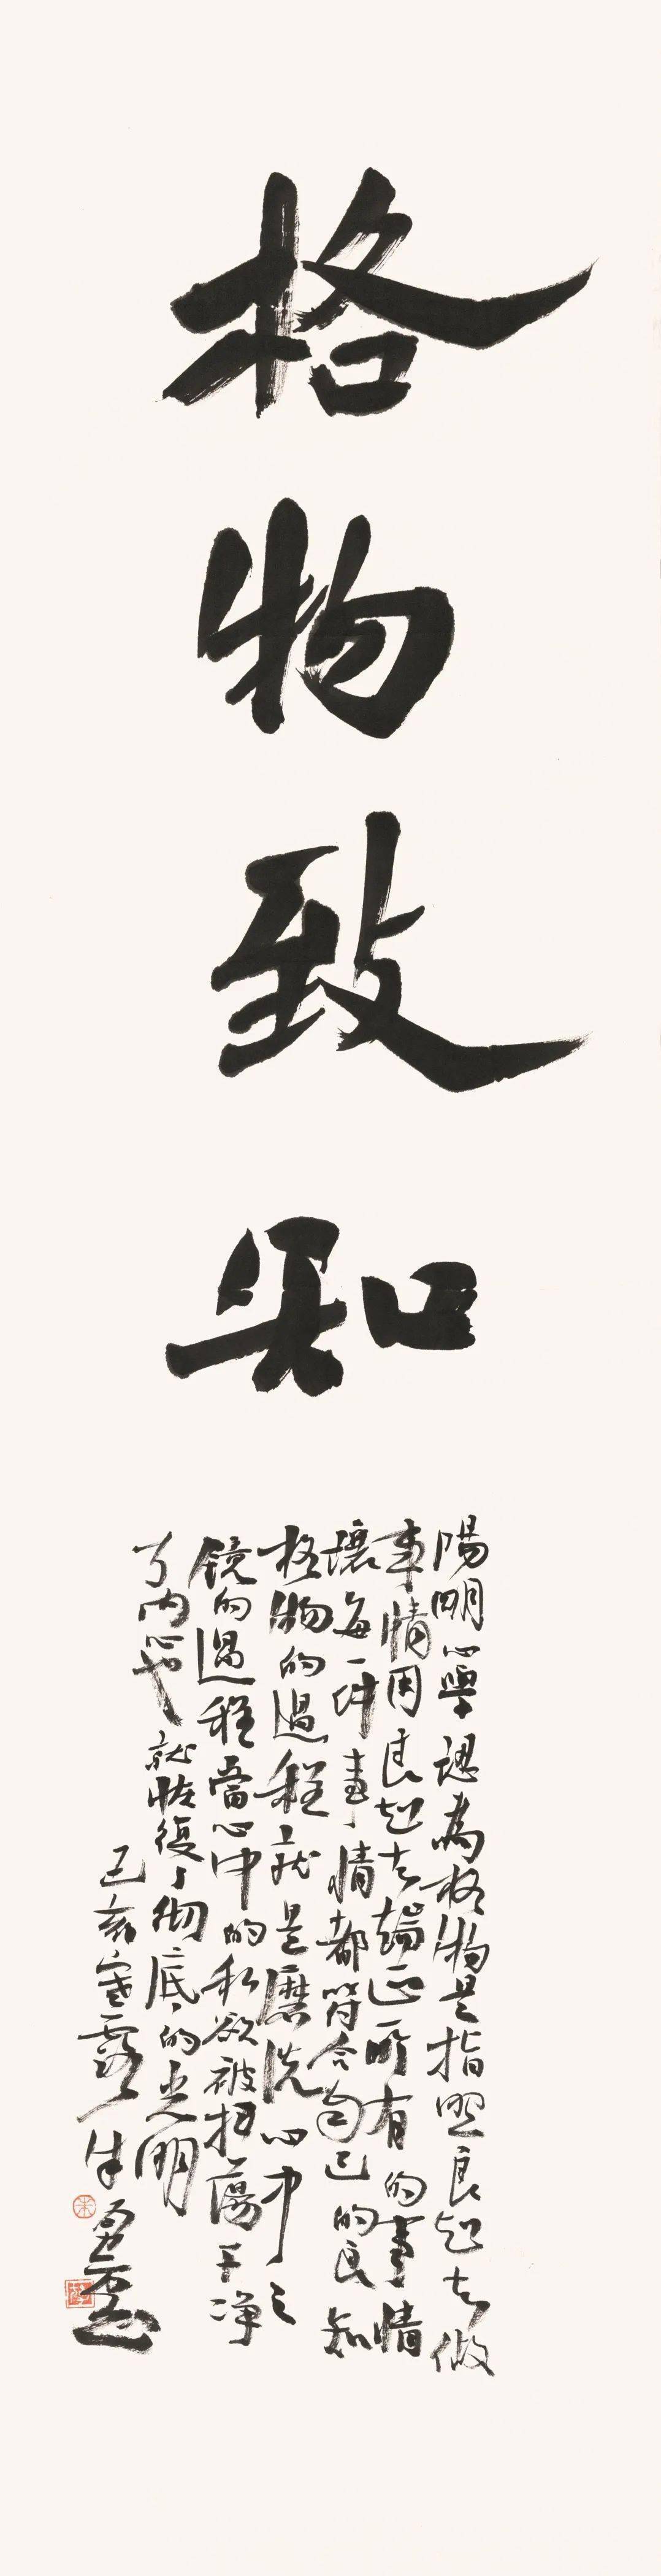 格物致知
陽明心學認為格物是指照良知去做
事情用良知去端正所有的事情
壞每一件事情都符合自己的良知
格物的過程就是磨洗心中之
镜的過程當心中的私欲被扫蕩干净
了内心就恢復了彻底的光明
己亥寒露朱勇
朱